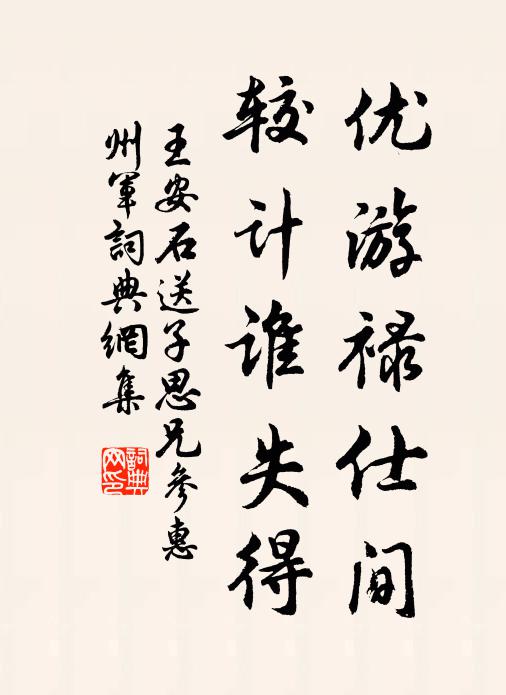 优游禄仕间
较计谁失得
王安石送子思兄参惠
州军詞典網集
詞典网印